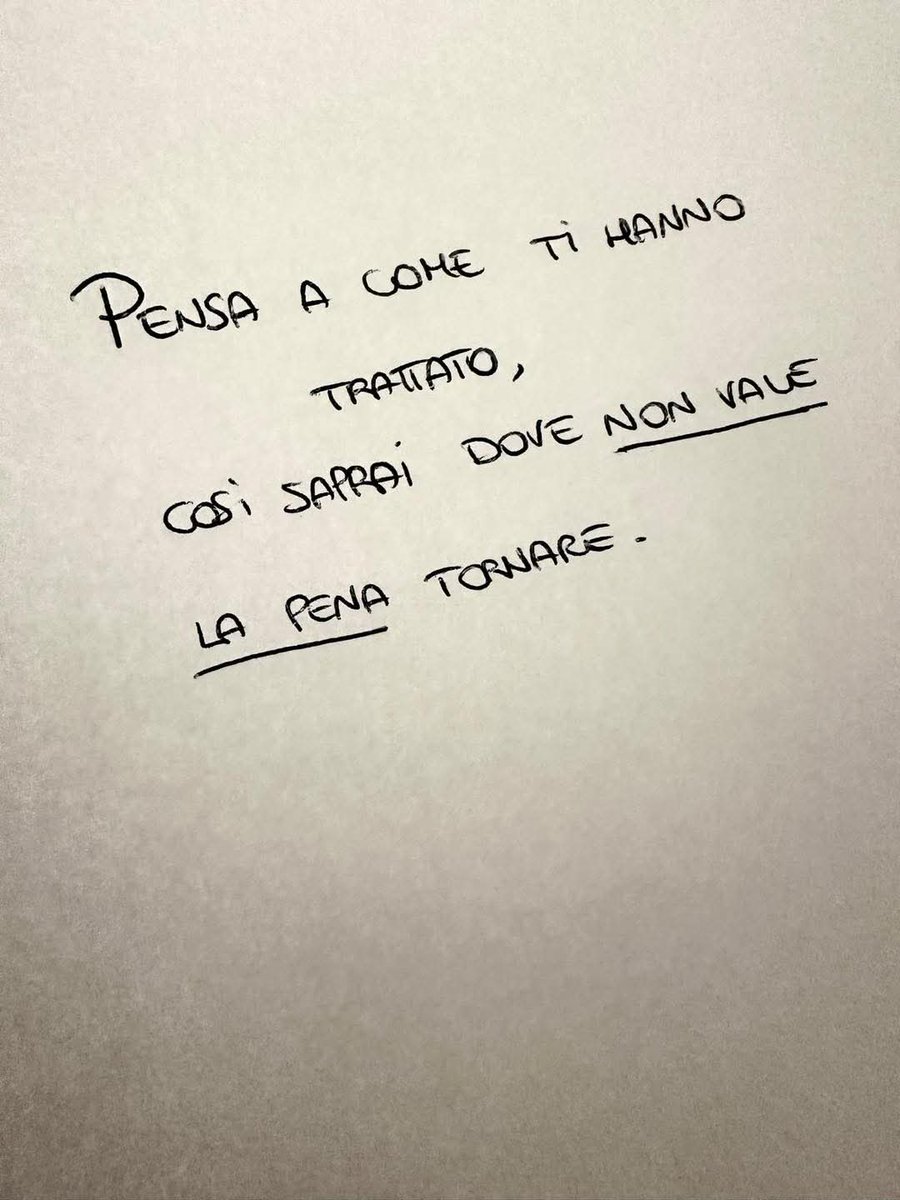 PENSA A COME TI HANNO
TRATTATO,
COSÌ SAPRAI DOVE NON VALE
LA PENA TORNARE.